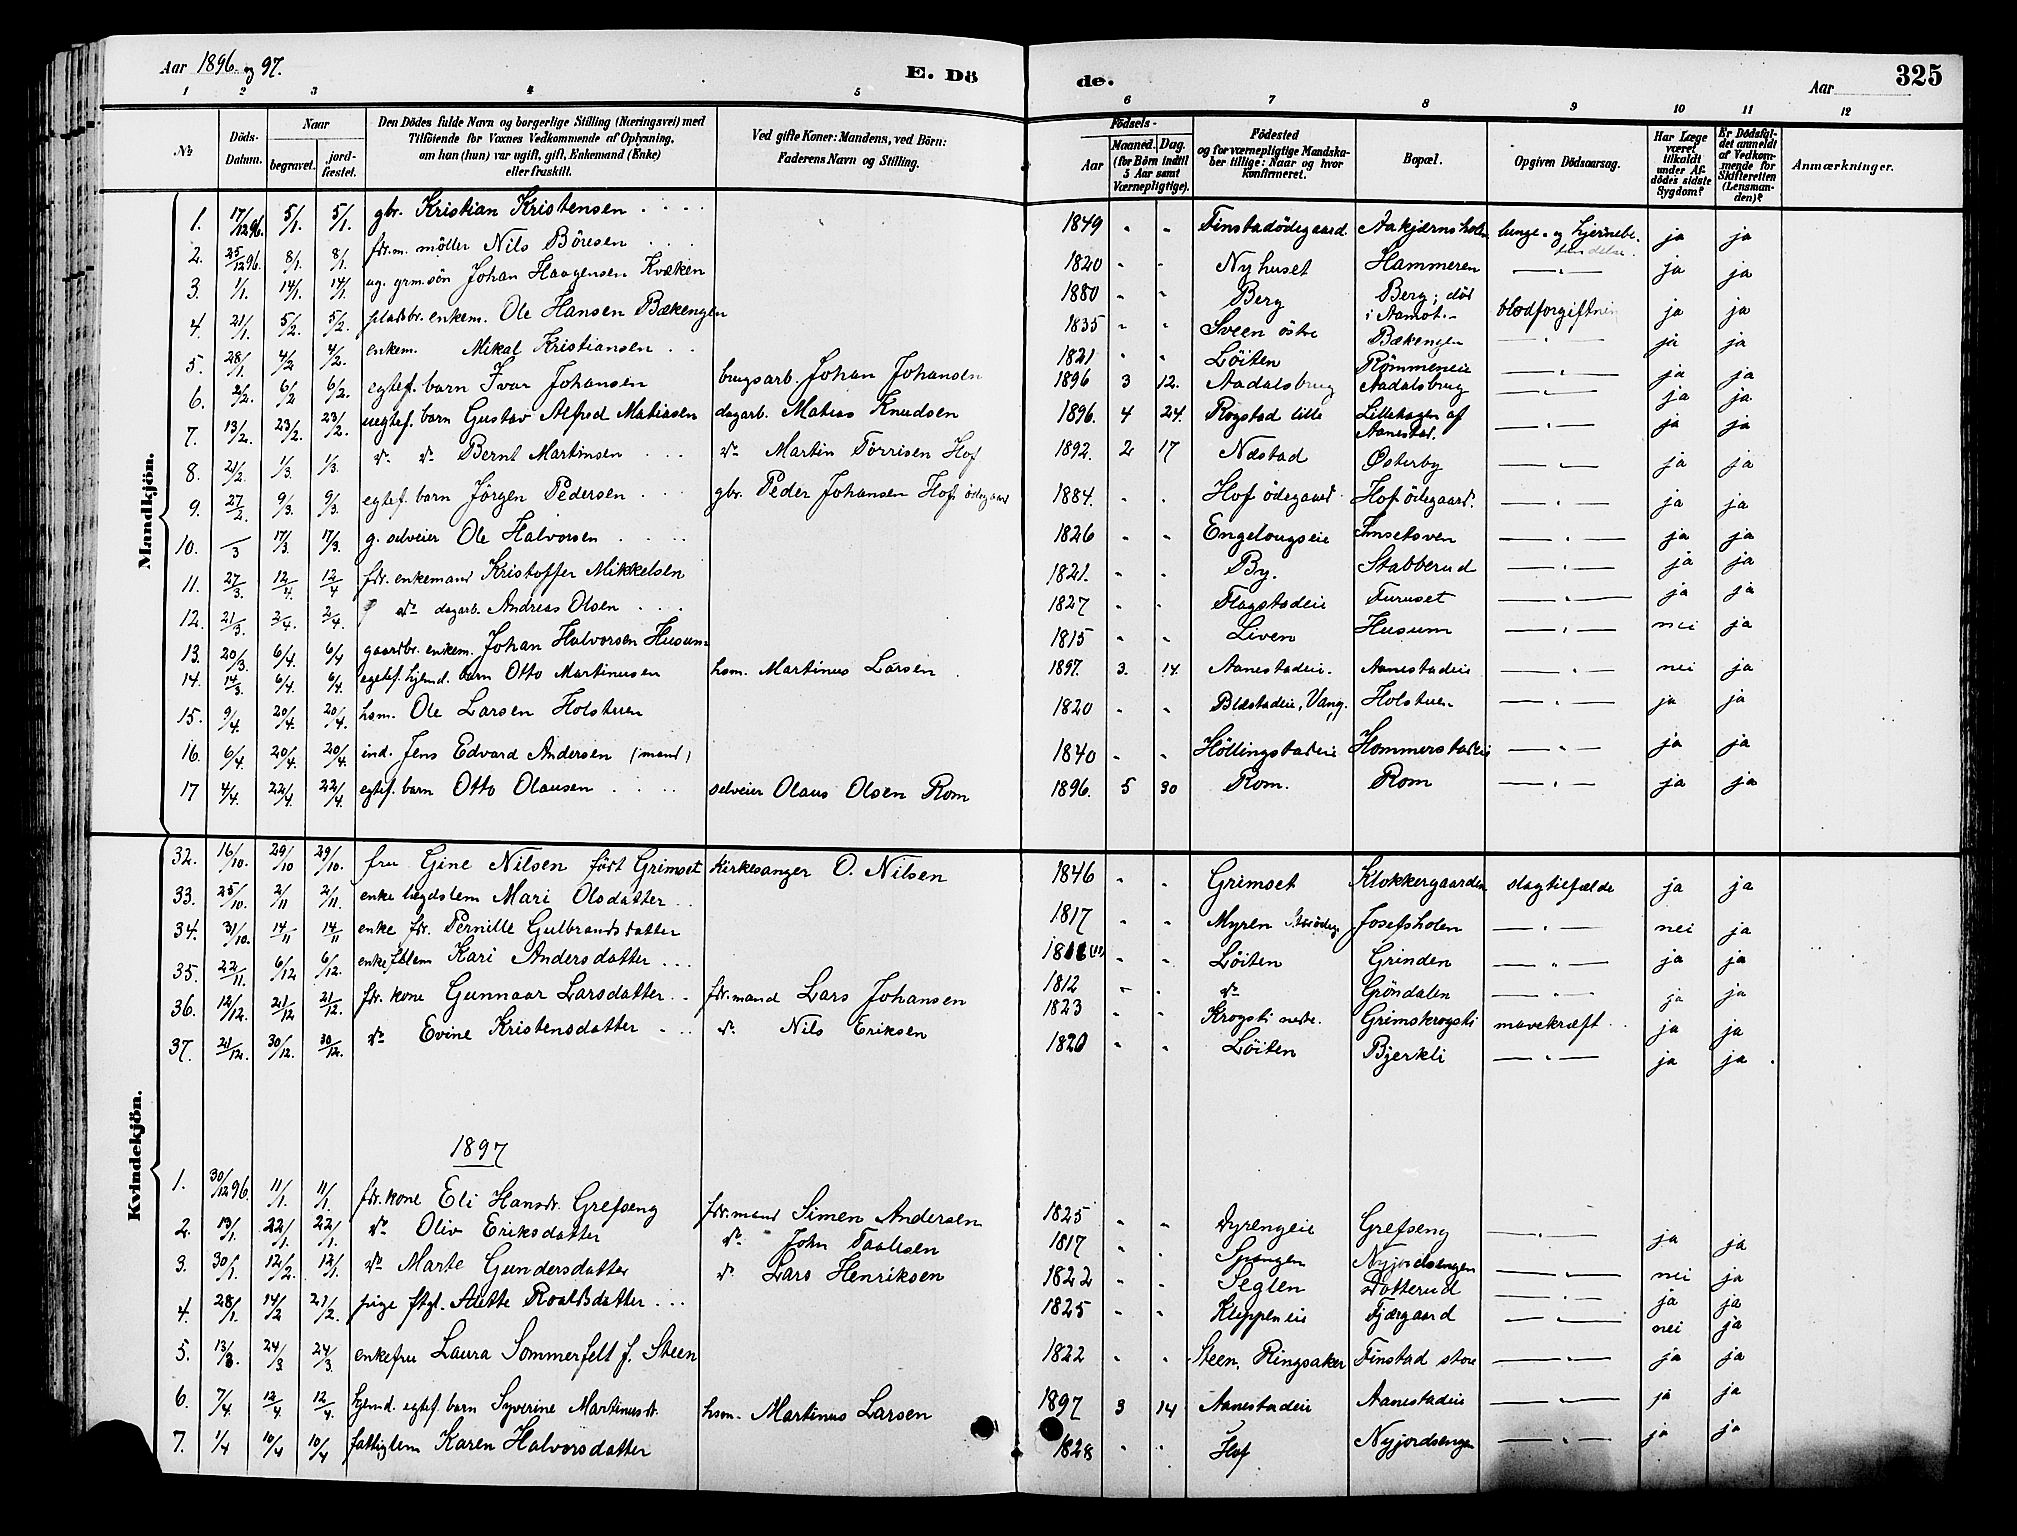 Aar 1896 og 97.
E. Dö
de.
Aar
325
1 2 3 4 5 6 7 8 9 10 11 12
No
Döds-Datum.
Naar
begravet.
jord-fæstet.
Den Dödes fulde Navn og borgerlige Stilling (Næringsvei) med
Tilföiende for Voxnes Vedkommende af Oplysning,
om han (hun) var ugift, gift, Enkemand (Enke)
eller fraskilt.
Ved gifte Koner: Mandens, ved Börn:
Faderens Navn og Stilling.
Födsels-
Aar
Maaned. Dag.
(for Börn indtil
5 Aar samt
Værnepligtige).
Födested
og for værnepligtige Mandska-
ber tillige: Naar og hvor
Konfirmeret.
Bopæl.
Opgiven Dödsaarsag.
Har Læge
været
tilkaldt
under Af-
dödes sidste
Sygdom?
Er Dödsfal-
det anmeldt
af Vedkom-
mende for
Skifteretten
(Lensman-
den)?
Anmærkninger.
Mandkjön.
1. 17/12 96. 5/1. 5/1. gbr. Kristian Kristensen 1849 " " Finstadödegaard. Aakjernsholen lunge- og hjernebe- ja ja
2. 25/12 96. 8/1. 8/1. fdr.m. möller Nils Böresen 1820 " " Nyhuset Hammeren — " — ja ja
3. 1/1. 14/1. 14/1. ug. grm.sön Johan Haagensen Kvæken 1880 " " Berg Berg; död i Aamot. blodforgiftning ja ja
4. 21/1. 5/2. 5/2. pladsbr. enkem. Ole Hansen Bækengen 1835 " " Sveen östre Bækengen — " — ja ja
5. 28/1. 4/2 4/2. enkem. Mikal Kristiansen 1821 " " Löiten Römmeneie — " — ja ja
6. 2/2. 6/2 6/2. egtef. barn Ivar Johansen brugsarb. Johan Johansen 1896 3 12. Aadalsbrug Aadalsbrug — " — ja ja
7. 13/2. 23/2. 23/2. uegtef. barn Gustav Alfred Matiasen dagarb. Matias Knudsen 1896. 4 24. Rogstad lille Lillehagen af Aanestad. — " — ja ja
8. 21/2 1/3. 1/3. do do Bernt Martinsen do Martin Törrisen Hof 1892. 2 17 Næstad Østerby — " — ja ja
9. 27/2. 9/3. 9/3. egtef. barn Jörgen Pedersen gbr. Peder Johansen Hof ödegaard 1884. " " Hof ödegaard Hof ödegaard. — " — ja ja
10. —/3 17/3. 17/3. g. selveier Ole Halvorsen 1826 " " Engelaugseie Imsetsven — " — ja ja
11. 27/3. 12/4. 12/4 fdr. enkemand Kristoffer Mikkelsen 1821. " " By. Stabberud — " — ja ja
12. 21/3. 2/4. 2/4. do dagarb. Andreas Olsen 1827 " " Flagstadeie Furuset — " — ja ja
13. 20/3. 6/4. 6/4 gaardbr. enkem. Johan Halvorsen Husum 1815 " " Liven Husum — " — nei ja
14. 14/3. 6/4. 6/4. egtef. hjemd. barn Otto Martinusen hsm. Martinus Larsen 1897. 3. 14. Aanestadeie. Aanestadeie — " — nei ja
15. 9/4. 20/4. 20/4. hsm. Ole Larsen Holstuen 1820 " " Blæstadeie, Vang. Holstuen — " — ja ja
16. 6/4. 20/4. 20/4. ind. Jens Edvard Andersen (mand) 1840 " " Höllingstadeie Hommerstadeie — " — ja ja
17 4/4. 22/4. 22/4. egtef. barn Otto Olausen selveier Olaus Olsen Rom 1896. 5 30 Rom. Rom — " — ja ja
Kvindekjön.
32. 16/10. 29/10 29/10. fru Gine Nilsen född Grimset Kirkesanger O. Nilsen 1846 " " Grimset Klokkergaarden slagtilfælde ja ja
33. 25/10. 2/11 2/11. enke lægdslem Mari Olsdatter 1817 " " Myren Josefsholen — " — nei ja
34. 31/10. 14/11 14/11 enke fdr. Pernille Gulbrandsdatter " " Löiten Grinden — " — ja ja
35. 22/11. 6/12 6/12. enke Kari Andersdatter 1812 " " do Gröndalen — " — ja ja
36. 12/12. 21/12 21/12. fdr. kone Gunnaar Larsdatter fdr. mand Lars Johansen 1823 " " Krogsti nedre. Grimskrogsti mavekræft ja ja
37. 21/12. 30/12. 30/12. do Evine Kristensdatter do. Nils Eriksen 1820 " " Löiten Bjerkli — " — ja ja
1897
1. 30/12 96. 11/1. 11/1. fdr. kone Eli Hansdr. Grefseng fdr. mand Simen Andersen 1825 " " Dyrengeie Grefseng — " — ja ja
2. 13/1. 22/1. 22/1. do Oliv Eriksdatter do John Taalesen 1817 " " Spangen Nyjordsengen — " — nei ja
3. 30/1. 12/2. 12/1. do Marte Gundersdatter do Lars Henriksen 1822 " " Seglen Dotterud — " — ja ja
4. 28/1. 14/2 21/2. pige ftgl. Anette Roaldsdatter 1825 " " Kleppeneie Fjærgaard — " — nei ja
5. 13/3. 24/3 24/3. enkefru Laura Sommerfelt f. Steen 1822 " " Steen, Ringsaker Finstad store — " — ja ja
6. 7/4. 12/4. 12/4. hjemd. egtef. barn Syverine Martinusdr. hsm. Martinus Larsen 1897 3 14 Aanestadeie Aanestadeie — " — ja ja
7. 1/4 10/4 10/4 fattiglem Karen Halvorsdatter 1828 " " Hof Nyjordsengen — " — ja ja